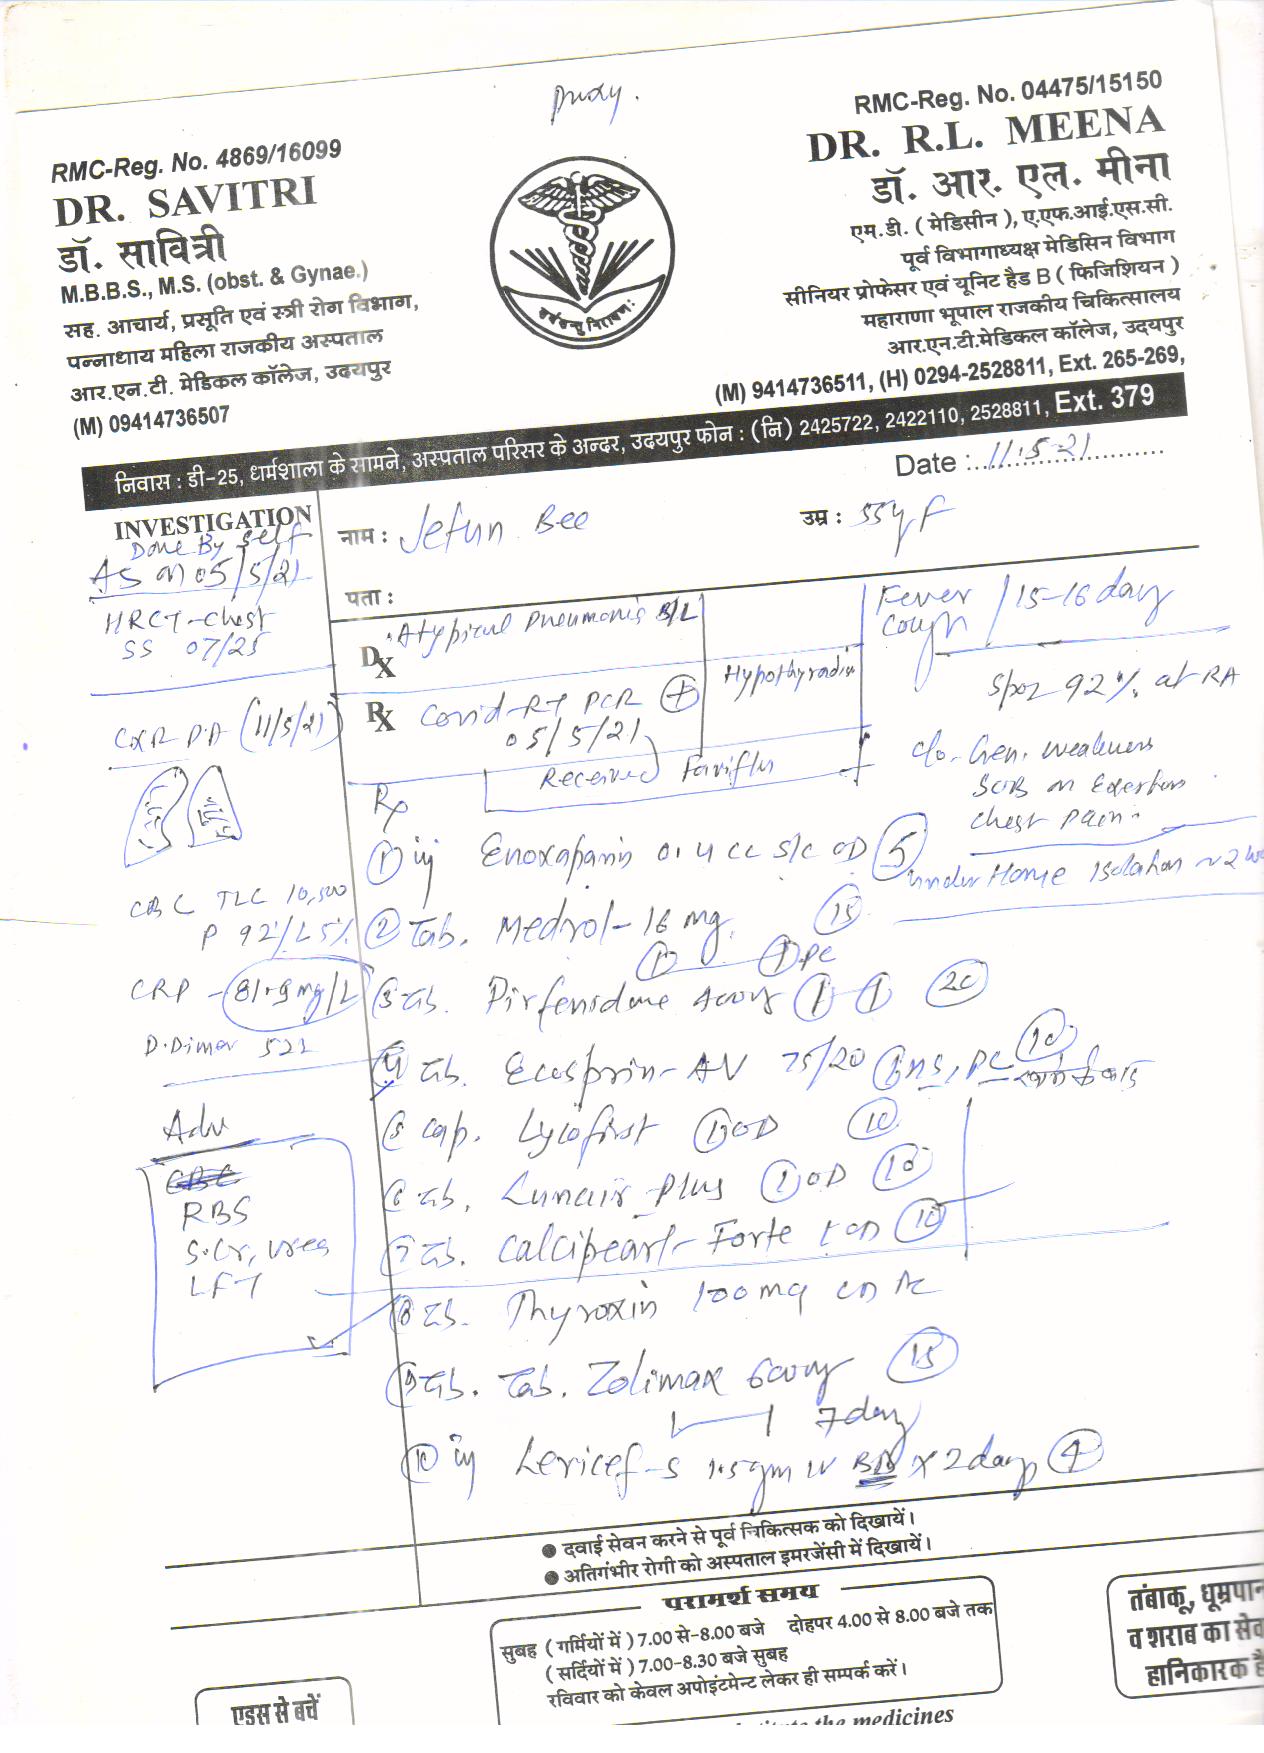 proxy.
RMC-Reg. No. 4869/16099
DR. SAVITRI
डॉ. सावित्री
M.B.B.S., M.S. (obst. & Gynae.)
सह. आचार्य, प्रसूति एवं स्त्री रोग विभाग,
पन्नाधाय महिला राजकीय अस्पताल
आर.एन.टी. मेडिकल कॉलेज, उदयपुर
(M) 09414736507
RMC-Reg. No. 04475/15150
DR. R.L. MEENA
डॉ. आर. एल. मीना
एम.डी. ( मेडिसीन ), ए.एफ.आई.एस.सी.
पूर्व विभागाध्यक्ष मेडिसिन विभाग
सीनियर प्रोफेसर एवं यूनिट हैड B ( फिजिशियन )
महाराणा भूपाल राजकीय चिकित्सालय
आर.एन.टी.मेडिकल कॉलेज, उदयपुर
(M) 9414736511, (H) 0294-2528811, Ext. 265-269,
निवास : डी-25, धार्मशाला के सामने, अस्पताल परिसर के अन्दर, उदयपुर फोन : (नि) 2425722, 2422110, 2528811, Ext. 379
Date : 11.5.21
नाम : Jetun Bee उम्र : 55y F
पता :
INVESTIGATION
Done By self
AS on 05/5/21
HRCT-chest
SS 07/25
CXR PA (11/5/21)
CBC TLC 10,500
P 92%/L5%
CRP - 81.9mg/L
D.Dimer 522
Adv
CBC
RBS
S.Cr, urea
LFT
Dx Atypical Pneumonia B/L
Hypothyroidism
Rx Covid-RT PCR (+)
05/5/21
Received Faviflu
Fever / 15-16 day
Cough
Spo2 92% at RA
c/o. Gen. weakness
SOB on Exertion
chest pain.
under Home Isolation ~2
Rx
① inj Enoxaparin 0.4 cc S/C OD 5
② Tab. Medrol-16 mg. 15
1 1 PC
③ Tab. Pirfenidone 400mg 1 - 1 20
④ Tab. Ecosprin-AV 75/20 1 HS, PC 10
⑤ Cap. Lycofirst 1 OD 10
⑥ Tab. Lunair Plus 1 OD 10
⑦ Tab. Calcipearl-Forte 1 OD 10
⑧ Tab. Thyroxin 100mg OD AC
⑨ Tab. Tab. Zolimax 600mg 15
1 1 7day
⑩ inj Lericef-S 1.5gm IV BD x 2day 4
● दवाई सेवन करने से पूर्व चिकित्सक को दिखायें।
● अतिगंभीर रोगी को अस्पताल इमरजेंसी में दिखायें।
परामर्श समय
सुबह ( गर्मियों में ) 7.00 से-8.00 बजे दोहपर 4.00 से 8.00 बजे तक
( सर्दियों में ) 7.00-8.30 बजे सुबह
रविवार को केवल अपोइंटमेन्ट लेकर ही सम्पर्क करें।
एड्स से बचें
तंबाकू, धूम्रपान
व शराब का सेव
हानिकारक है
the medicines